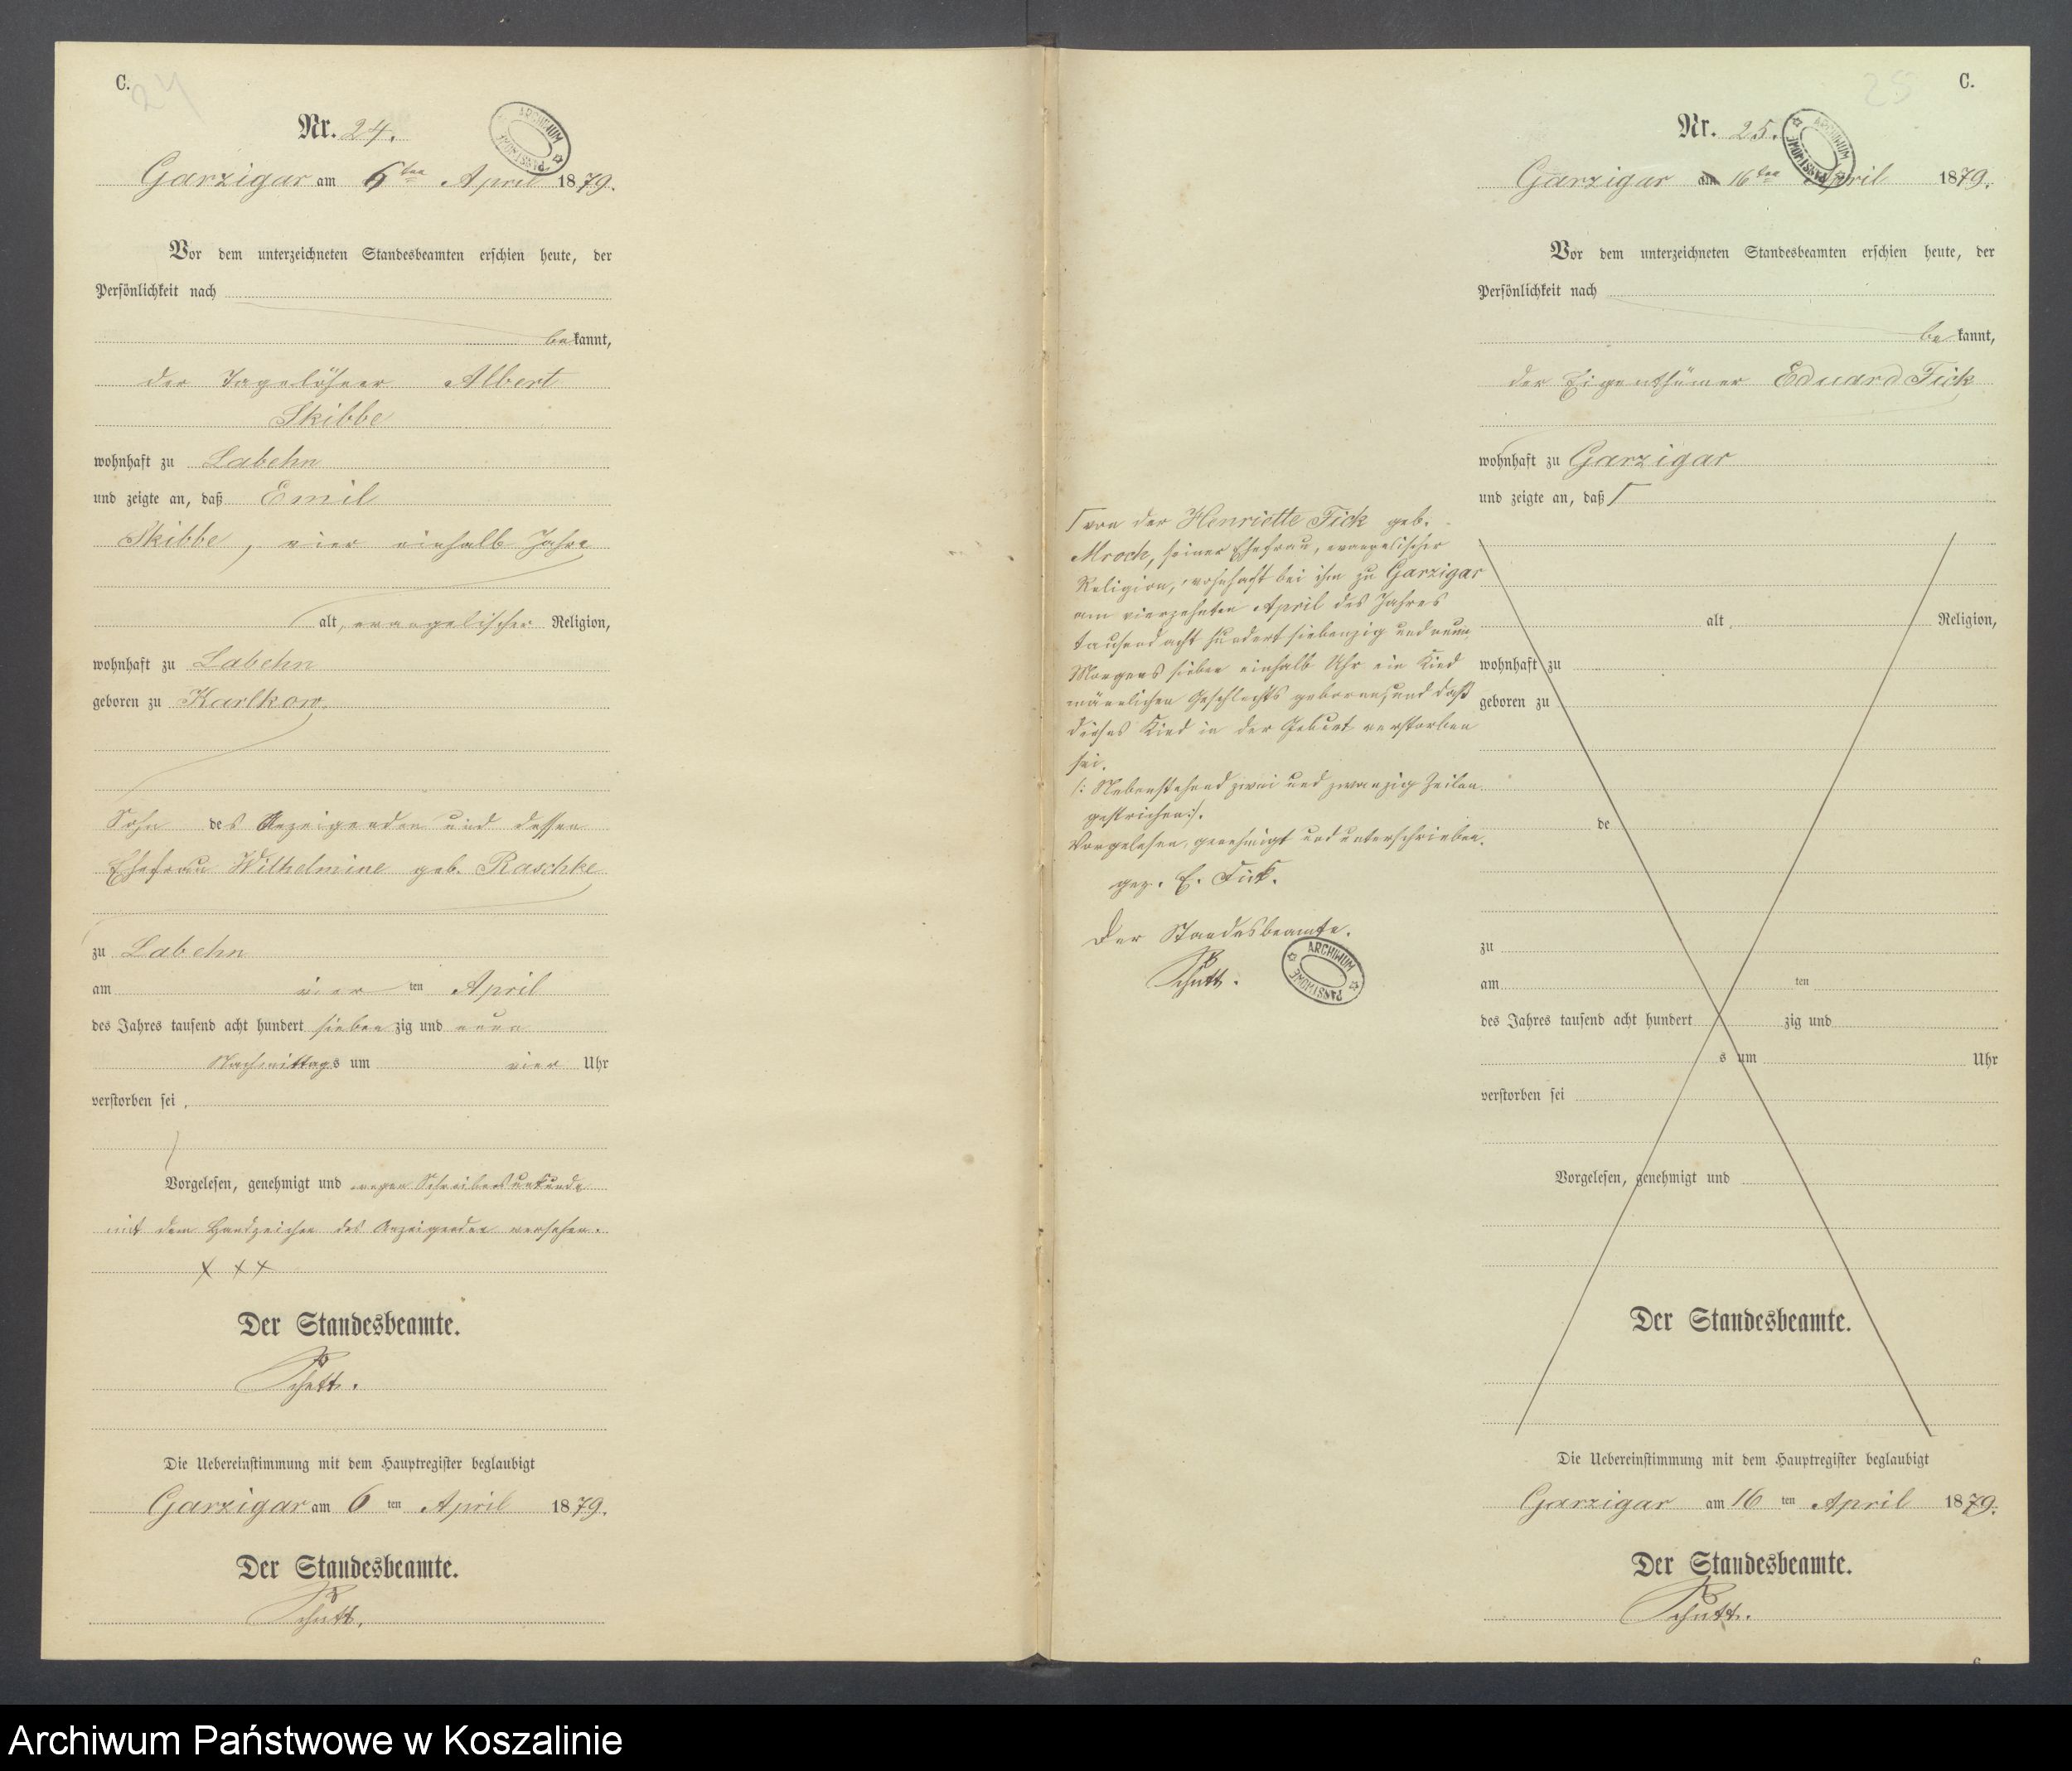 C.
24
Nr. 24.
ARCHIWUM PAŃSTWOWE
Garzigar am 6ten April 1879.
Vor dem unterzeichneten Standesbeamten erschien heute, der
Persönlichkeit nach
bekannt,
der Tagelöhner Albert
Skibbe
wohnhaft zu Labehn
und zeigte an, daß Emil
Skibbe, vier einhalb Jahre
alt, evangelischer Religion,
wohnhaft zu Labehn
geboren zu Karlkow
Sohn des Anzeigenden und dessen
Ehefrau Wilhelmine geb. Raschke
zu Labehn
am vier ten April
des Jahres tausend acht hundert siebenzig und neun
Nachmittags um vier Uhr
verstorben sei.
Vorgelesen, genehmigt und wegen Schreibensunkunde
mit dem Handzeichen des Anzeigenden versehen.
XXX
Der Standesbeamte.
Die Uebereinstimmung mit dem Hauptregister beglaubigt
Garzigar am 6 ten April 1879.
Der Standesbeamte.
⌈ von der Henriette Fick geb.
Mroch, seiner Ehefrau, evangelischer
Religion, wohnhaft bei ihm zu Garzigar
am vierzehnten April des Jahres
tausend acht hundert siebenzig und neun
Morgens sieben einhalb Uhr ein Kind
männlichen Geschlechts geboren, und daß
dieses Kind in der Geburt verstorben
sei.
/: Nebenstehend zwei und zwanzig Zeilen
gestrichen :/.
Vorgelesen, genehmigt und unterschrieben.
gez. E. Fick.
Der Standesbeamte.
ARCHIWUM PAŃSTWOWE
25
C.
Nr. 25.
ARCHIWUM PAŃSTWOWE
Garzigar am 16ten April 1879.
Vor dem unterzeichneten Standesbeamten erschien heute, der
Persönlichkeit nach
bekannt,
der Eigenthümer Eduard Fick
wohnhaft zu Garzigar
und zeigte an, daß ⌈
alt, Religion,
wohnhaft zu
geboren zu
de
zu
am ten
des Jahres tausend acht hundert zig und
s um Uhr
verstorben sei
Vorgelesen, genehmigt und
Der Standesbeamte.
Die Uebereinstimmung mit dem Hauptregister beglaubigt
Garzigar am 16 ten April 1879.
Der Standesbeamte.
6
Archiwum Państwowe w Koszalinie